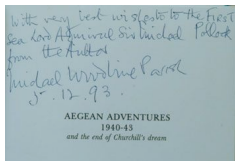 With very best wishes to the First
Sea Lord Admiral Sir Michael Pollock
from the Author
Michael Woodbine Parish
5. 12. 93.
AEGEAN ADVENTURES
1940-43
and the end of Churchill's dream